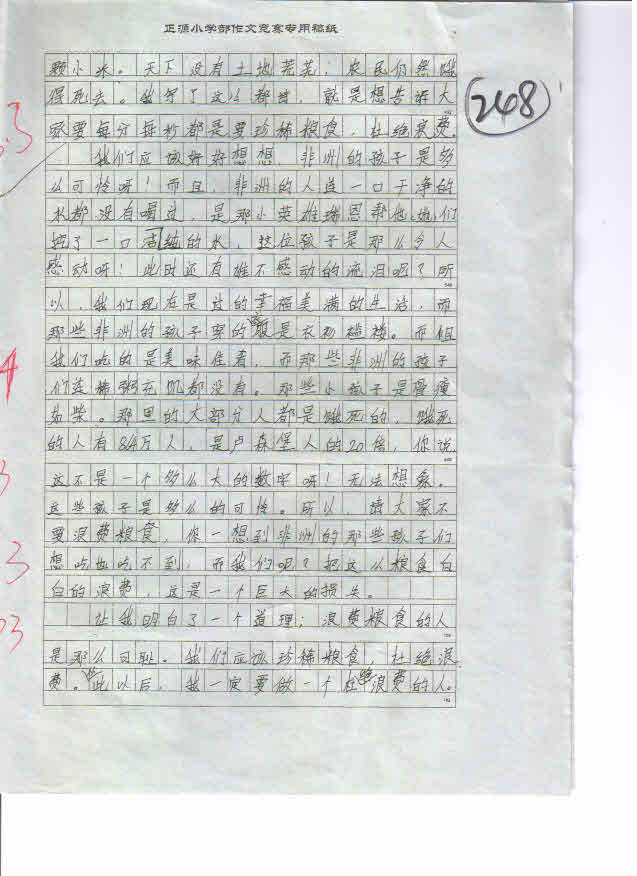 正源小学部作文竞赛专用稿纸
248
颗小米。天下没有土地荒芜，农民们然饿
得死去。他写了这么都时，就是想告诉大
家要每分每秒都是要珍稀粮食，杜绝浪费。
我们应做好好想想，非洲的孩子是多
么可怜呀！而且，非洲的人连一口干净的
水都没有喝过，是那小英雄瑞恩帮他她们
挖了一口清纯的水，这位孩子是那么令人
感动呀！此时还有谁不感动的流泪呢？所
以，我们现在是过的幸福美满的生活，而
那些非洲的孩子穿的是衣衫褴褛。而但
我们吃的是美味佳肴，而那些非洲的孩子
们连稀粥充饥都没有。那些小孩子是骨瘦
如柴。那里的大部分人都是饿死的，饿死
的人有84万人，是卢森堡人的20倍，你说
这不是一个多么大的数字呀！无法想象。
这些孩子是多么的可怜。所以，请大家不
要浪费粮食，你一想到非洲的那些孩子们
想吃也吃不到，而我们呢？把这么粮食白
白的浪费，这是一个巨大的损失。
让我明白了一个道理；浪费粮食的人
是那么可耻。我们应该珍稀粮食，杜绝浪
费。从此以后，我一定要做一个杜绝浪费的人。